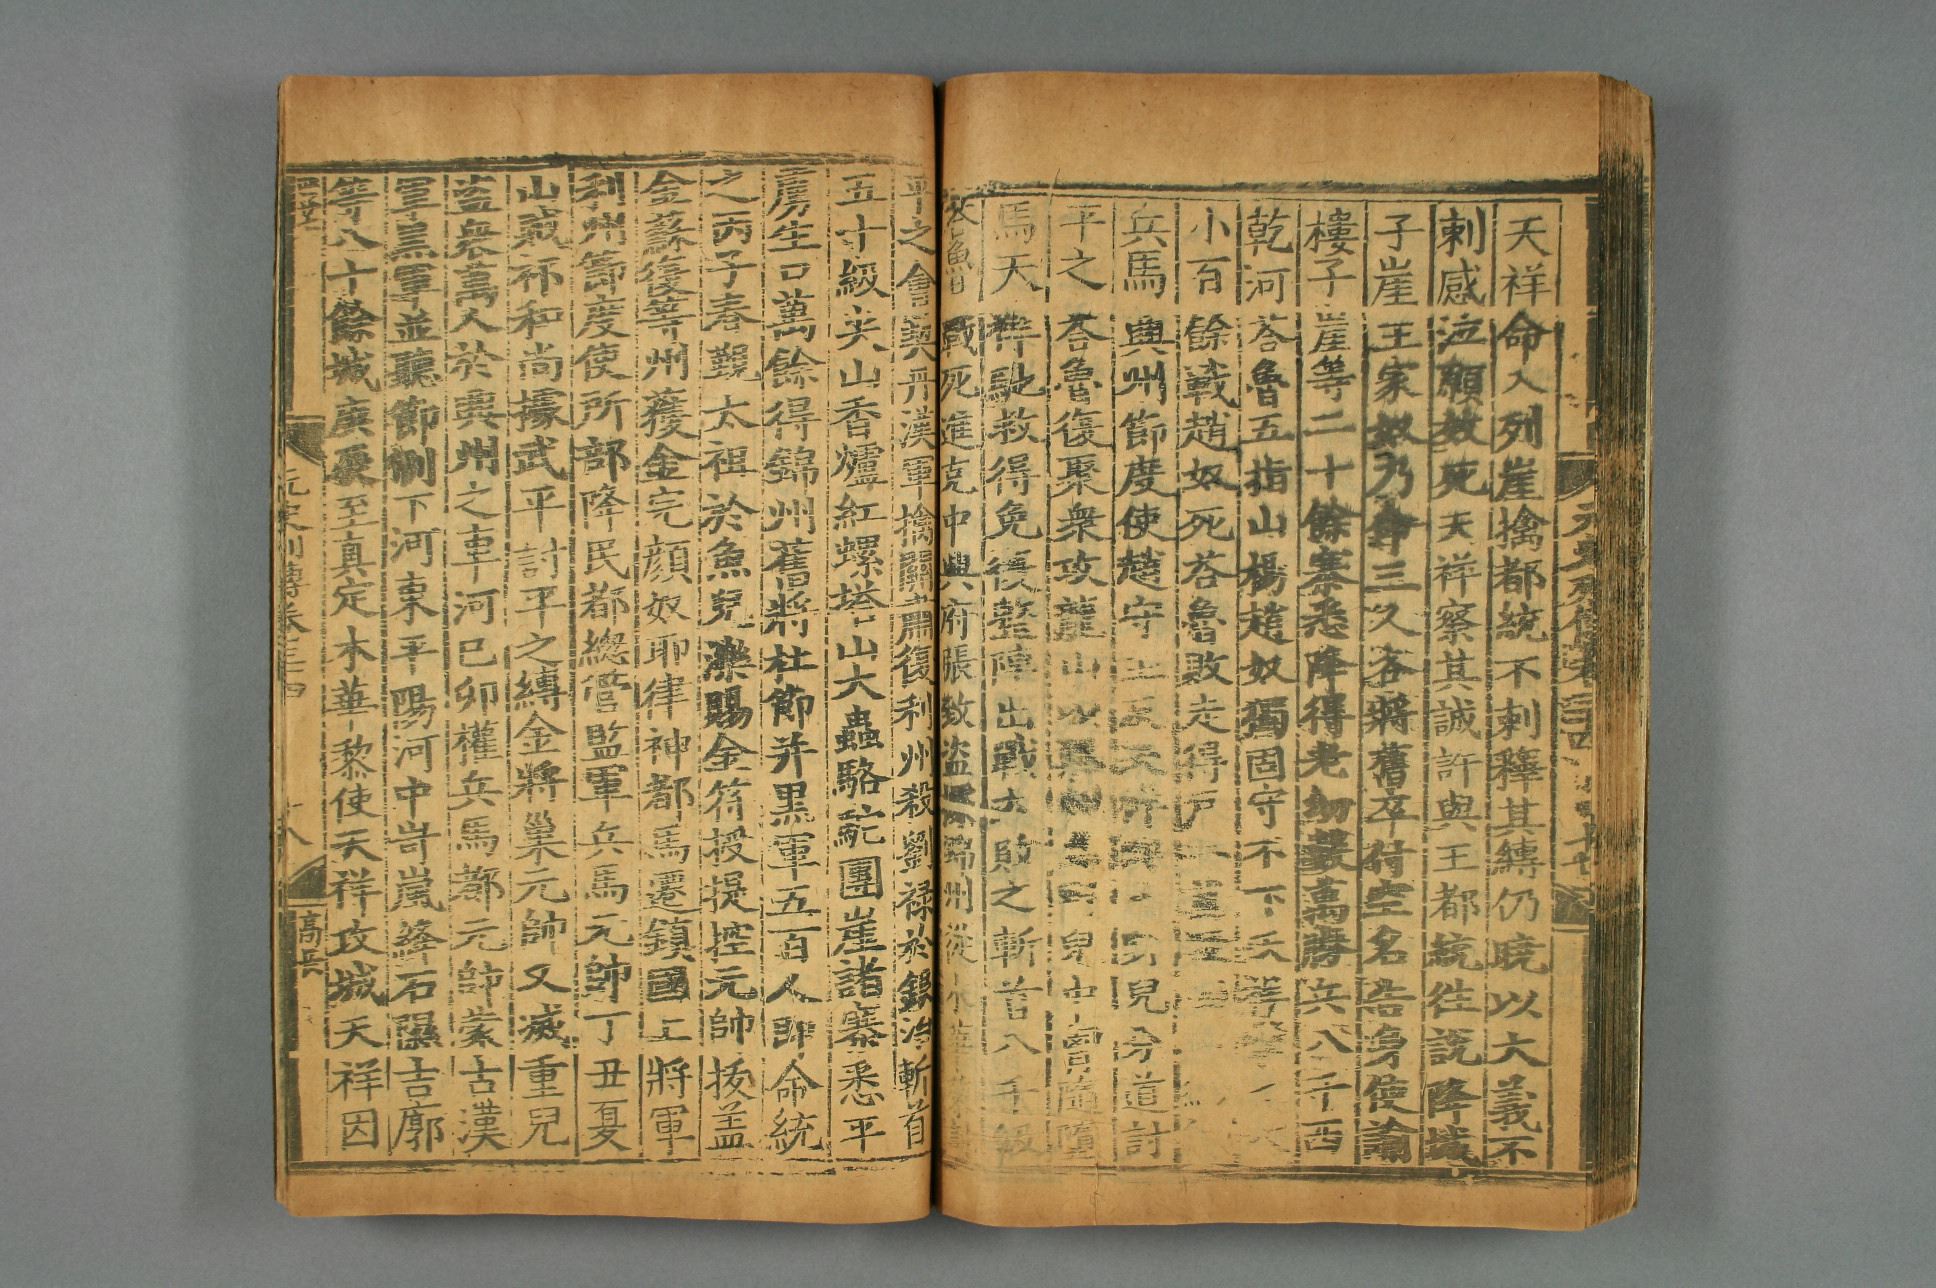 天祥命入列崖擒都統不刺釋其縛仍曉以大義不
刺感泣願效死天祥察其誠許與王都統往說降城
子崖王家奴乃命三人各將舊卒付空名告身使諭
樓子崖等二十餘寨悉降得老幼數萬勝兵八千西
乾河荅魯五指山楊趙奴獨固守不下天祥擊
小百餘戰趙奴死荅魯敗走得戶
兵馬興州節度使趙守玉反天祥與 兒分道討
平之荅魯復聚衆攻龍山 兒中 隨墮
馬天祥馳救得免復整陣出戰大敗之斬首八千級
荅魯 戰死進克中興府張致盜據錦州從木華黎討
平之會契丹漢軍擒關肅復利州殺劉祿於銀冶斬首
五十級尖山香爐紅螺塔山大蟲駱駝團崖諸寨悉平
虜生口萬餘得錦州舊將杜節并黒軍五百人即命統
之丙子春覲太祖於魚兒濼賜金符授提控元帥拔盖
金蘇復等州獲金完顔奴耶律神都馬遷鎮國上將軍
利州節度使所部降民都總管監軍兵馬元帥丁丑夏
山賊祁和尚據武平討平之縛金將巢元帥又滅重兒
盜衆萬人於興州之車河己卯權兵馬都元帥蒙古漢
軍黒軍並聽節制下河東平陽河中岢嵐絳石隰吉廓
等八十餘城庚辰至真定木華黎使天祥攻城天祥因
元史列傳卷三十四
十八